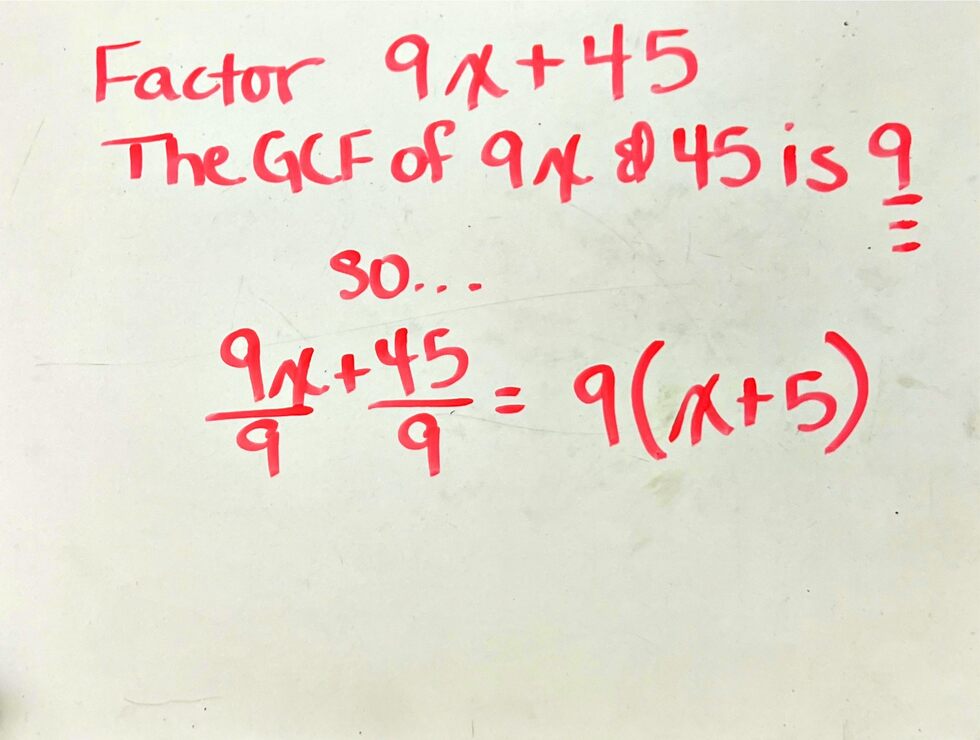 Factor 9x + 45
The GCF of 9x & 45 is 9
so...
9x/9 + 45/9 = 9(x+5)